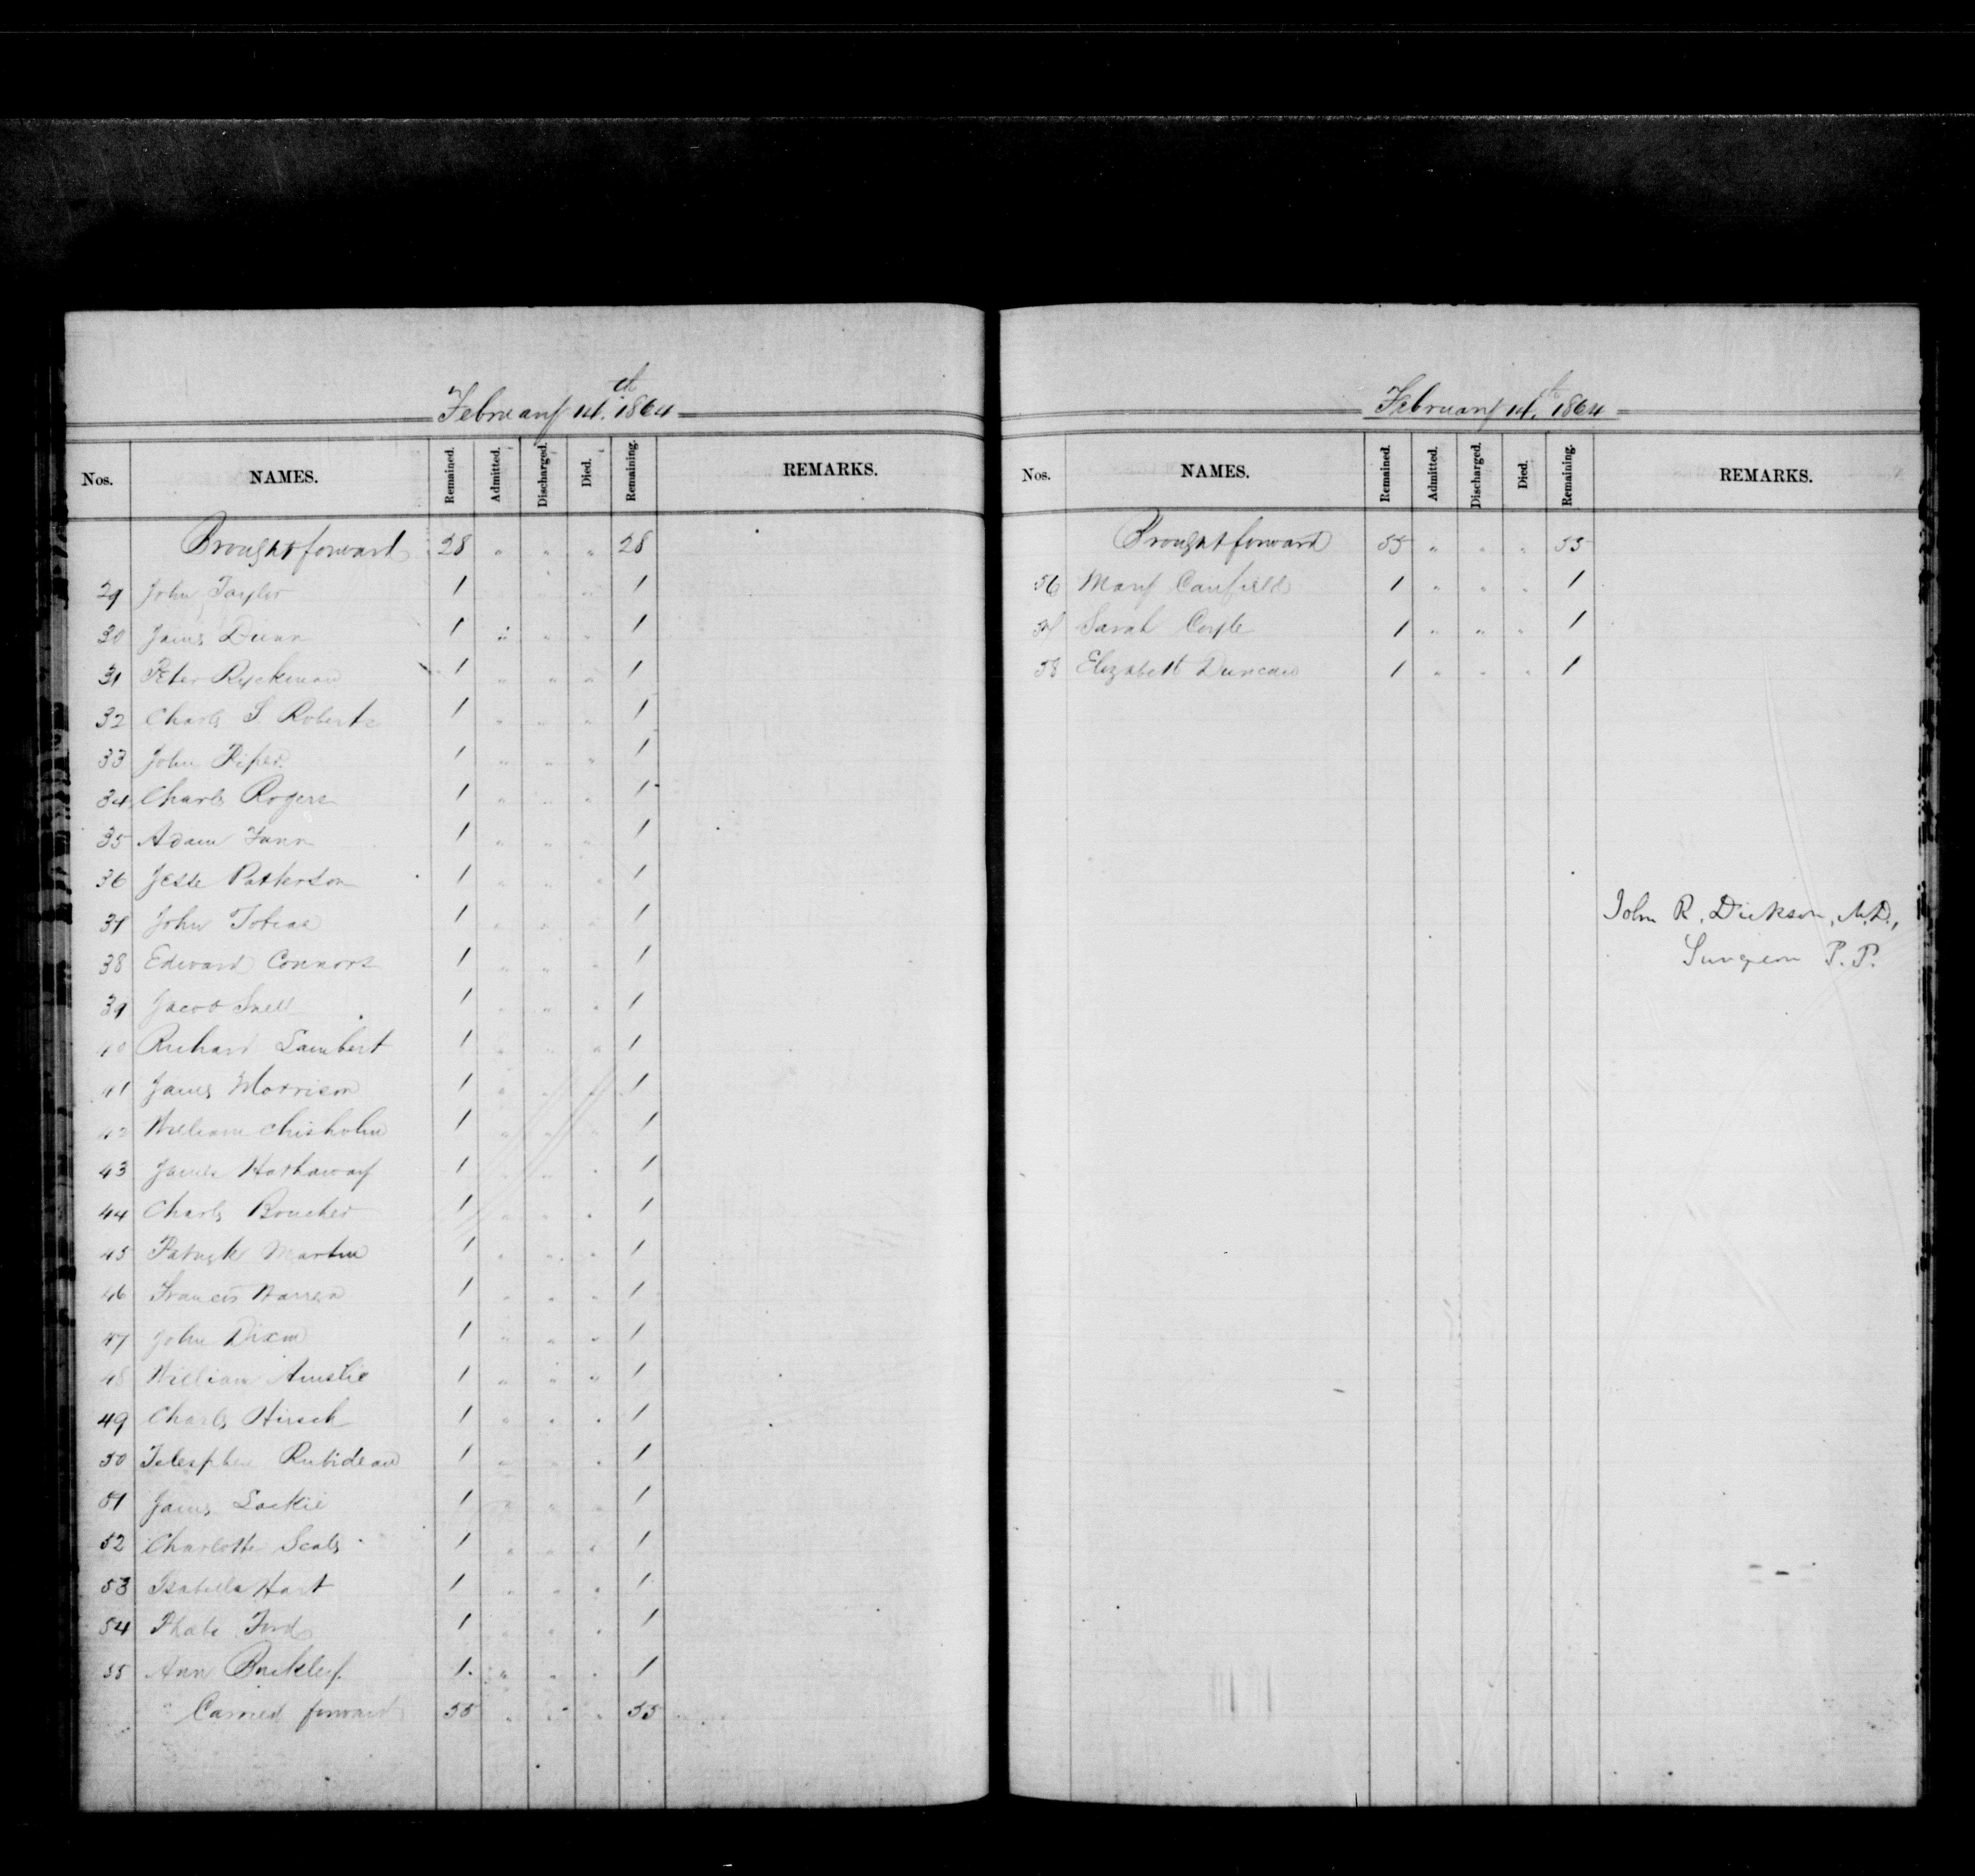 February 14th. 1864
Nos. NAMES. Remained. Admitted. Discharged. Died. Remaining. REMARKS.
Brought forward 28 " " " 28
29 John Taylor 1 " " " 1
30 James Dunn 1 " " " 1
31 Peter Ryckman 1 " " " 1
32 Charles S. Roberts 1 " " " 1
33 John Piper 1 " " " 1
34 Charles Rogers 1 " " " 1
35 Adam Fann 1 " " " 1
36 Jesse Patterson 1 " " " 1
37 John Tobias 1 " " " 1
38 Edward Connors 1 " " " 1
39 Jacob Snell 1 " " " 1
40 Richard Lambert 1 " " " 1
41 James Morrison 1 " " " 1
42 William Chisholm 1 " " " 1
43 James Hathaway 1 " " " 1
44 Charles Boucher 1 " " " 1
45 Patrick Martin 1 " " " 1
46 Francis Warren 1 " " " 1
47 John Dixon 1 " " " 1
48 William Ainslie 1 " " " 1
49 Charles Hirsch 1 " " " 1
50 Telesphore Rubideau 1 " " " 1
51 James Lackie 1 " " " 1
52 Charlotte Scales 1 " " " 1
53 Isabella Hart 1 " " " 1
54 Phabe Ford 1 " " " 1
55 Ann Buckley 1 " " " 1
Carried forward 55 " " " 55
February 14th. 1864
Nos. NAMES. Remained. Admitted. Discharged. Died. Remaining. REMARKS.
Brought forward 55 " " " 55
56 Mary Canfield 1 " " " 1
57 Sarah Coyle 1 " " " 1
58 Elizabeth Duncan 1 " " " 1
John R. Dickson, M.D.,
Surgeon P.P.